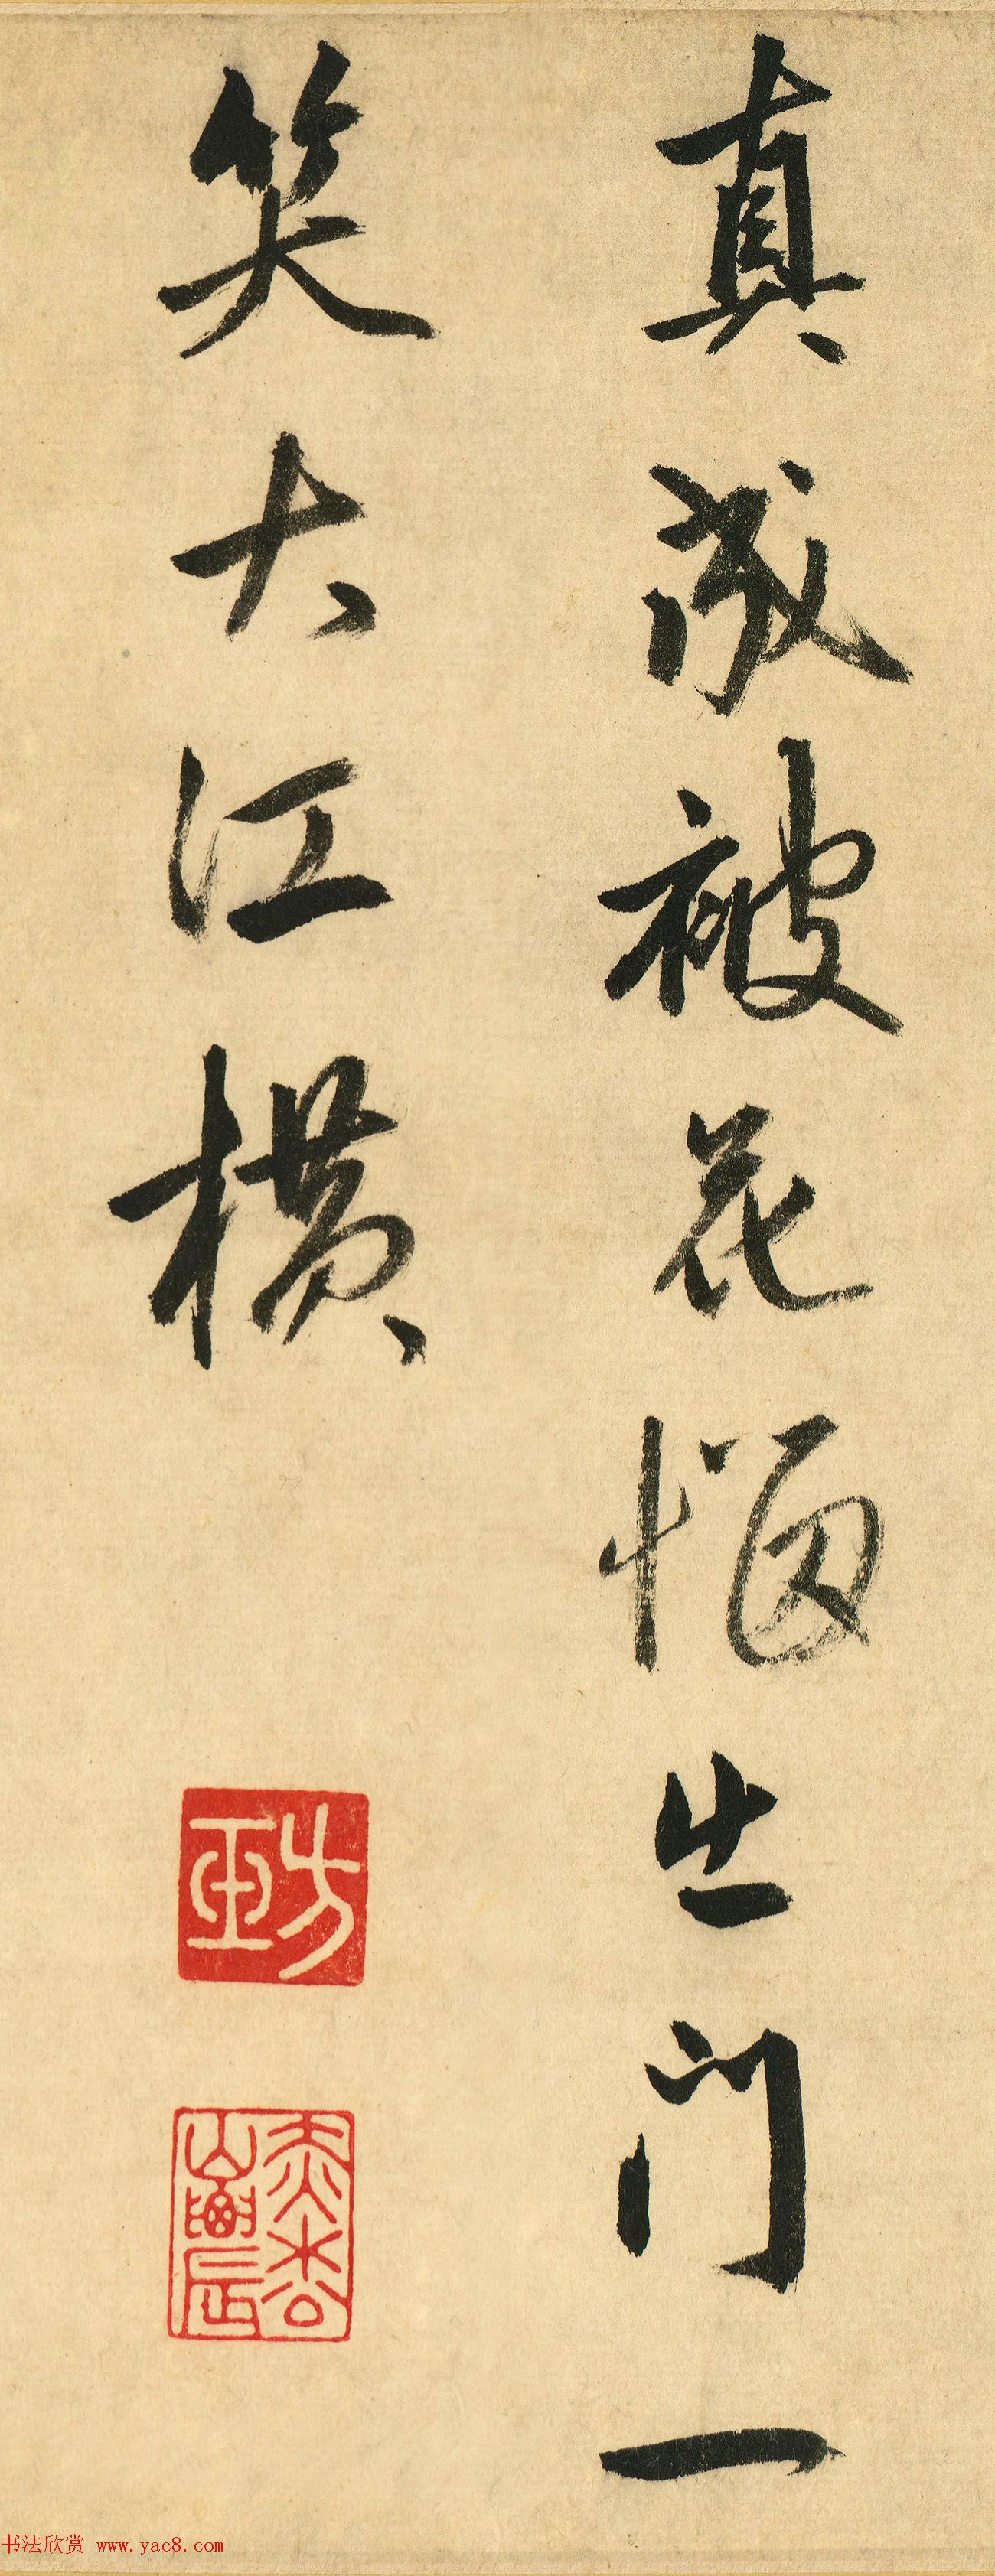 真成被花惱出門一
笑大江横
书法欣赏 www.yac8.com